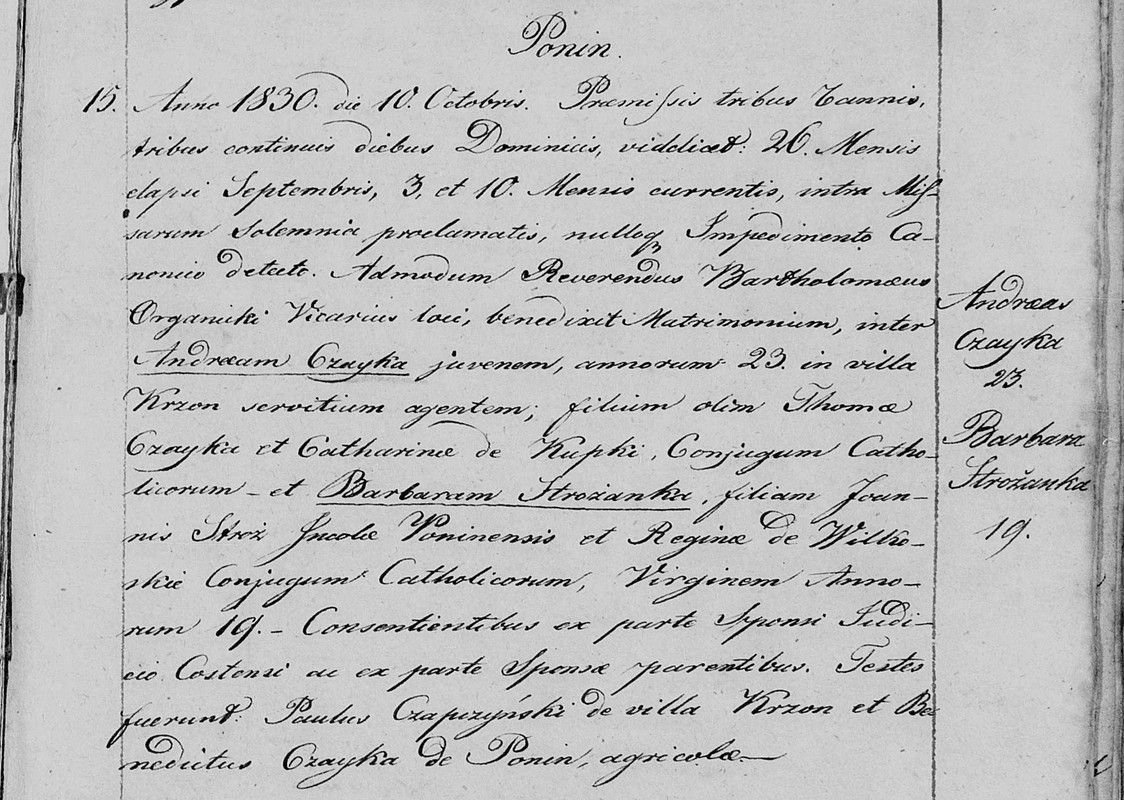 Ponin.
15. Anno 1830. die 10. Octobris. Præmissis tribus bannis,
tribus continuis diebus Dominicis, videlicet: 26. Mensis
elapsi Septembris, 3, et 10. Mensis currentis, intra Mis-
sarum solemnia proclamatis, nulloq Impedimento Ca-
nonico detecto. Admodum Reverendus Bartholomæus
Organicki Vicarius loci, benedixit Matrimonium, inter
Andræam Czayka juvenem, annorum 23. in villa
Krzon servitium agentem; filium olim Thomæ
Czayka et Catharinæ de Kupki, Conjugum Catho-
licorum - et Barbaram Strożanka, filiam Joan-
nis Stroż Incolæ Poninensis et Reginæ de Wilko-
skie Conjugum Catholicorum, Virginem Anno-
rum 19. - Consentientibus ex parte Sponsi Judi-
cio Costensi ac ex parte Sponsæ parentibus. Testes
fuerunt: Paulus Czapczyński de villa Krzon et Be-
nedictus Czayka de Ponin, agricolæ —
Andræas
Czayka
23.
Barbara
Strożanka
19.